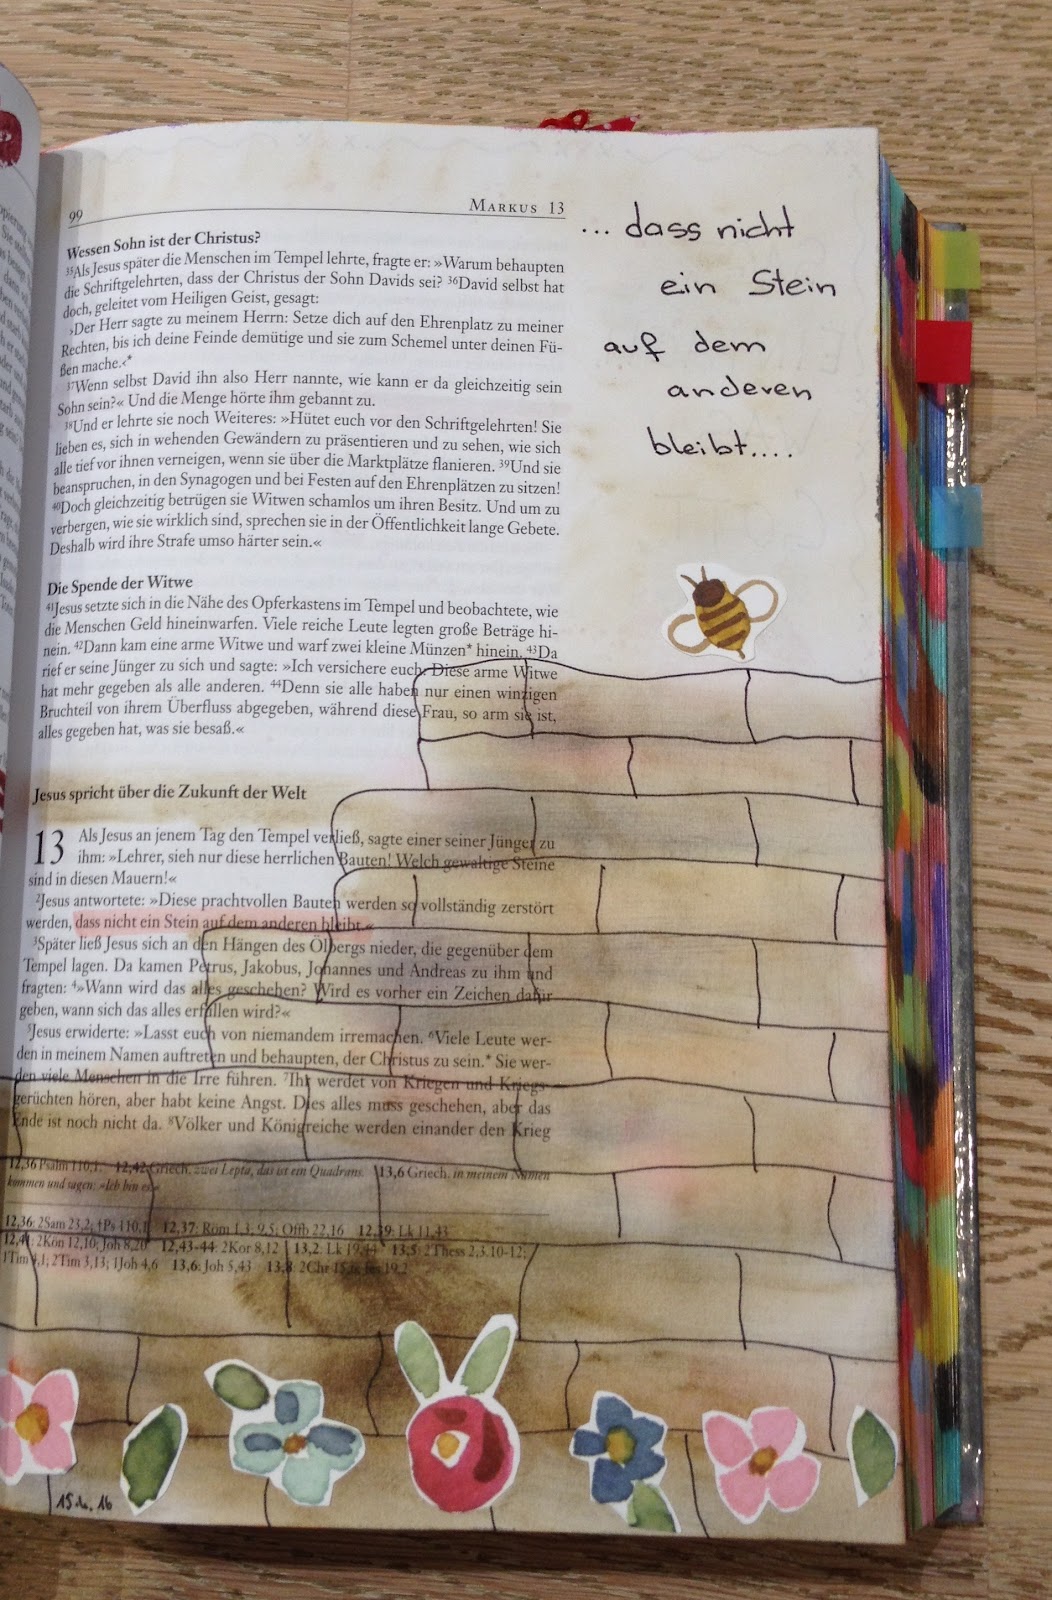 99
MARKUS 13
Wessen Sohn ist der Christus?
35Als Jesus später die Menschen im Tempel lehrte, fragte er: »Warum behaupten
die Schriftgelehrten, dass der Christus der Sohn Davids sei? 36David selbst hat
doch, geleitet vom Heiligen Geist, gesagt:
›Der Herr sagte zu meinem Herrn: Setze dich auf den Ehrenplatz zu meiner
Rechten, bis ich deine Feinde demütige und sie zum Schemel unter deinen Fü-
ßen mache.‹*
37Wenn selbst David ihn also Herr nannte, wie kann er da gleichzeitig sein
Sohn sein?« Und die Menge hörte ihm gebannt zu.
38Und er lehrte sie noch Weiteres: »Hütet euch vor den Schriftgelehrten! Sie
lieben es, sich in wehenden Gewändern zu präsentieren und zu sehen, wie sich
alle tief vor ihnen verneigen, wenn sie über die Marktplätze flanieren. 39Und sie
beanspruchen, in den Synagogen und bei Festen auf den Ehrenplätzen zu sitzen!
40Doch gleichzeitig betrügen sie Witwen schamlos um ihren Besitz. Und um zu
verbergen, wie sie wirklich sind, sprechen sie in der Öffentlichkeit lange Gebete.
Deshalb wird ihre Strafe umso härter sein.«
Die Spende der Witwe
41Jesus setzte sich in die Nähe des Opferkastens im Tempel und beobachtete, wie
die Menschen Geld hineinwarfen. Viele reiche Leute legten große Beträge hi-
nein. 42Dann kam eine arme Witwe und warf zwei kleine Münzen* hinein. 43Da
rief er seine Jünger zu sich und sagte: »Ich versichere euch: Diese arme Witwe
hat mehr gegeben als alle anderen. 44Denn sie alle haben nur einen winzigen
Bruchteil von ihrem Überfluss abgegeben, während diese Frau, so arm sie ist,
alles gegeben hat, was sie besaß.«
Jesus spricht über die Zukunft der Welt
13 Als Jesus an jenem Tag den Tempel verließ, sagte einer seiner Jünger zu
ihm: »Lehrer, sieh nur diese herrlichen Bauten! Welch gewaltige Steine
sind in diesen Mauern!«
2Jesus antwortete: »Diese prachtvollen Bauten werden so vollständig zerstört
werden, dass nicht ein Stein auf dem anderen bleibt.«
3Später ließ Jesus sich an den Hängen des Ölbergs nieder, die gegenüber dem
Tempel lagen. Da kamen Petrus, Jakobus, Johannes und Andreas zu ihm und
fragten: 4»Wann wird das alles geschehen? Wird es vorher ein Zeichen dafür
geben, wann sich das alles erfüllen wird?«
5Jesus erwiderte: »Lasst euch von niemandem irremachen. 6Viele Leute wer-
den in meinem Namen auftreten und behaupten, der Christus zu sein.* Sie wer-
den viele Menschen in die Irre führen. 7Ihr werdet von Kriegen und Kriegs-
gerüchten hören, aber habt keine Angst. Dies alles muss geschehen, aber das
Ende ist noch nicht da. 8Völker und Königreiche werden einander den Krieg
12,36 Psalm 110,1. 12,42 Griech. zwei Lepta, das ist ein Quadrans. 13,6 Griech. in meinem Namen
kommen und sagen: »Ich bin es.«
12,36: 2Sam 23,2; †Ps 110,1 12,37: Röm 1,3; 9,5; Offb 22,16 12,39: Lk 11,43
12,41: 2Kön 12,10; Joh 8,20 12,43-44: 2Kor 8,12 13,2: Lk 19,44 13,5: 2Thess 2,3.10-12;
1Tim 4,1; 2Tim 3,13; 1Joh 4,6 13,6: Joh 5,43 13,8: 2Chr 15,6; Jes 19,2
... dass nicht
ein Stein
auf dem
anderen
bleibt....